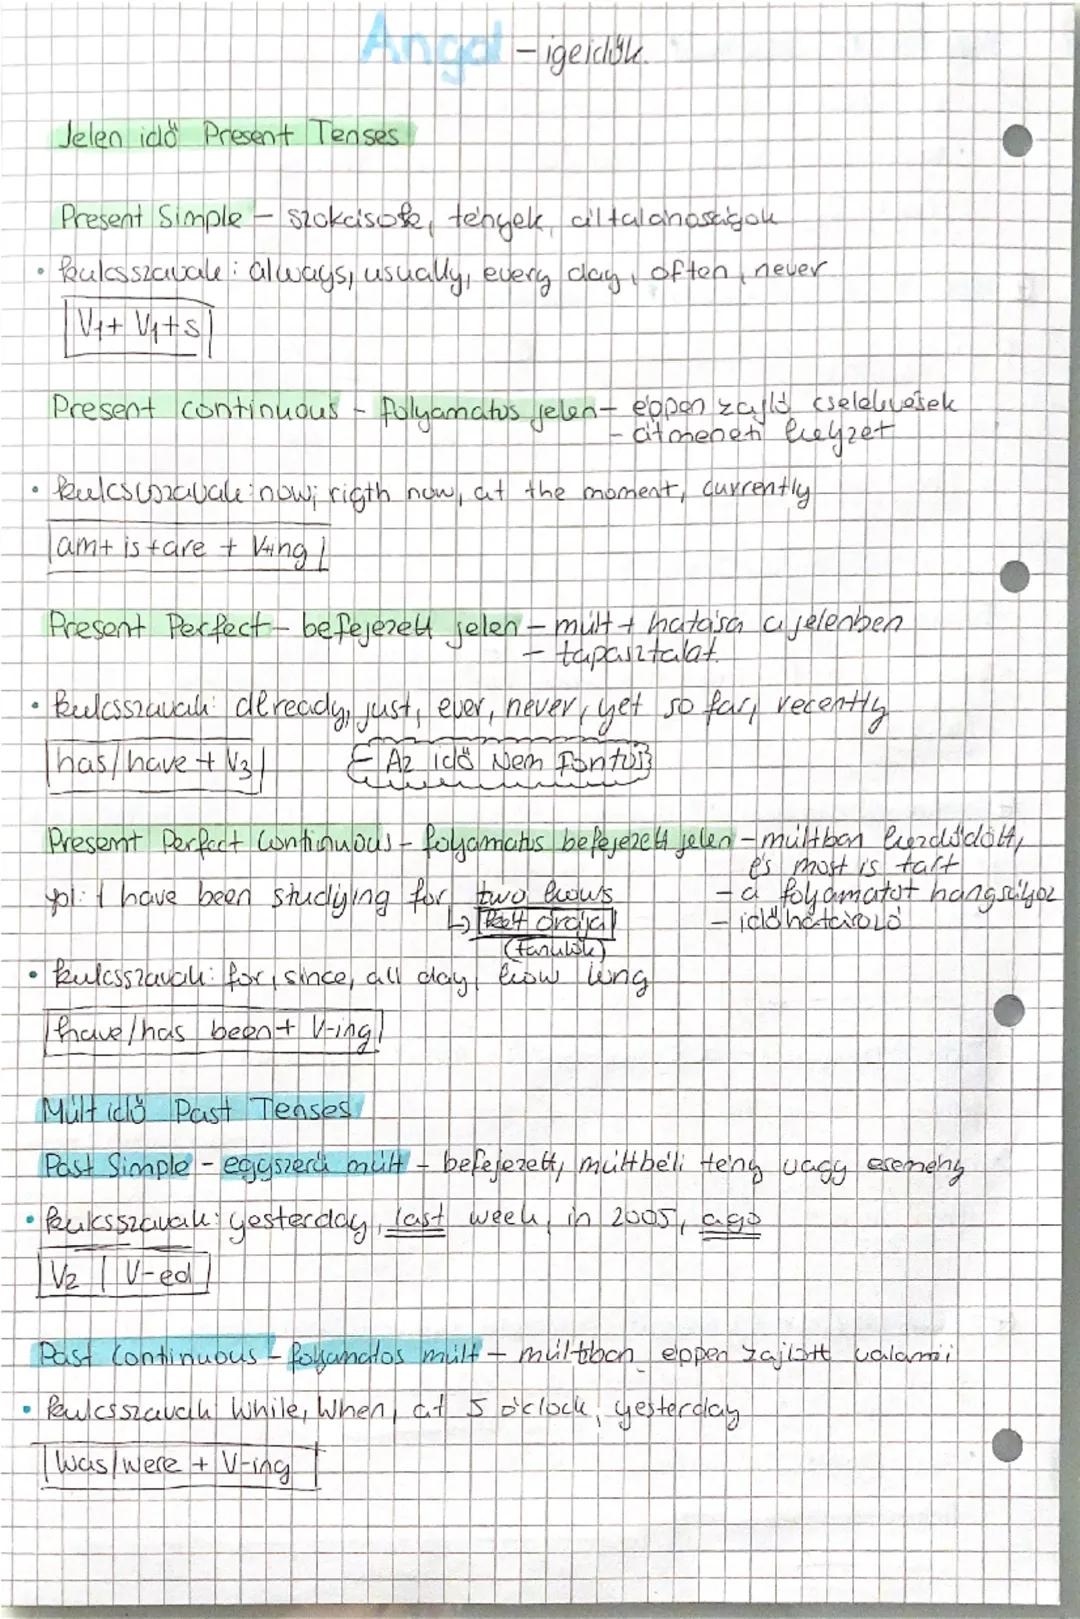 Angol - igeidők.
Jelen idő Present Tenses
Present Simple - szokások, tények, általánosságok
• kulcsszavak: always, usually, every day, often, never
V1 + V1+s
Present continuous - folyamatos jelen - éppen zajló cselekvések
- átmeneti helyzet
• kulcsszavak: now; rigth now, at the moment, currently
am + is + are + V+ing
Present Perfect - befejezett jelen - múlt + hatása a jelenben
- tapasztalat.
• kulcsszavak: already, just, ever, never, yet so far, recently
has/have + V3
- Az idő Nem Fontos
Present Perfect Continuous - folyamatos befejezett jelen - múltban kezdődött,
és most is tart
pl: I have been studying for two hours
- a folyamatot hangsúlyoz
↳ két órája
- időhatározó
(tanulok)
• kulcsszavak: for, since, all day, how long
have/has been + V-ing
Múlt idő Past Tenses
Past Simple - eggszerű múlt - befejezett, múltbéli tény vagy esemény
• kulcsszavak: yesterday, last week, in 2005, ago
V2 | V-ed
Past Continuous - folyamatos múlt - múltban éppen zajlott valami
• kulcsszavak While, When, at 5 o'clock, yesterday
was/were + V-ing